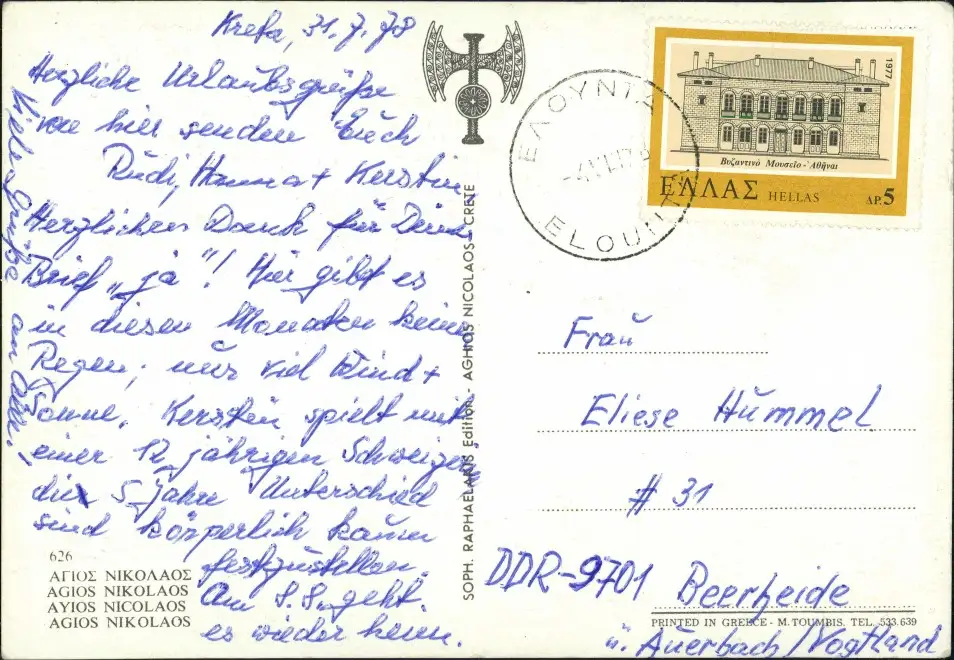 Kreta, 31.7.78
Herzliche Urlaubsgrüße
von hier senden Euch
Rudi, Hanna + Kerstin
Herzlichen Dank für Deinen
Brief „ja"! Hier gibt es
in diesen Monaten keinen
Regen; nur viel Wind +
Sonne. Kerstin spielt mit
einer 12 jährigen Schweizerin
die 5 Jahre Unterschied
sind körperlich kaum
festzustellen.
Am 8.8. geht
es wieder heim.
Viele Grüße an alle!
626
ΑΓΙΟΣ ΝΙΚΟΛΑΟΣ
AGIOS NIKOLAOS
AYIOS NICOLAOS
AGIOS NIKOLAOS
SOPH. RAPHAELAKIS Edition - AGHIOS NICOLAOS - CRETE
ΕΛΟΥΝΤΑ
ELOUNTA
1977
Βυζαντινό Μουσείο - Ἀθῆναι
ΕΛΛΑΣ HELLAS ΔΡ. 5
Frau
Eliese Hummel
# 31
DDR-9701 Beerheide
PRINTED IN GREECE - M. TOUMBIS. TEL. 533.639
ü. Auerbach/Vogtland